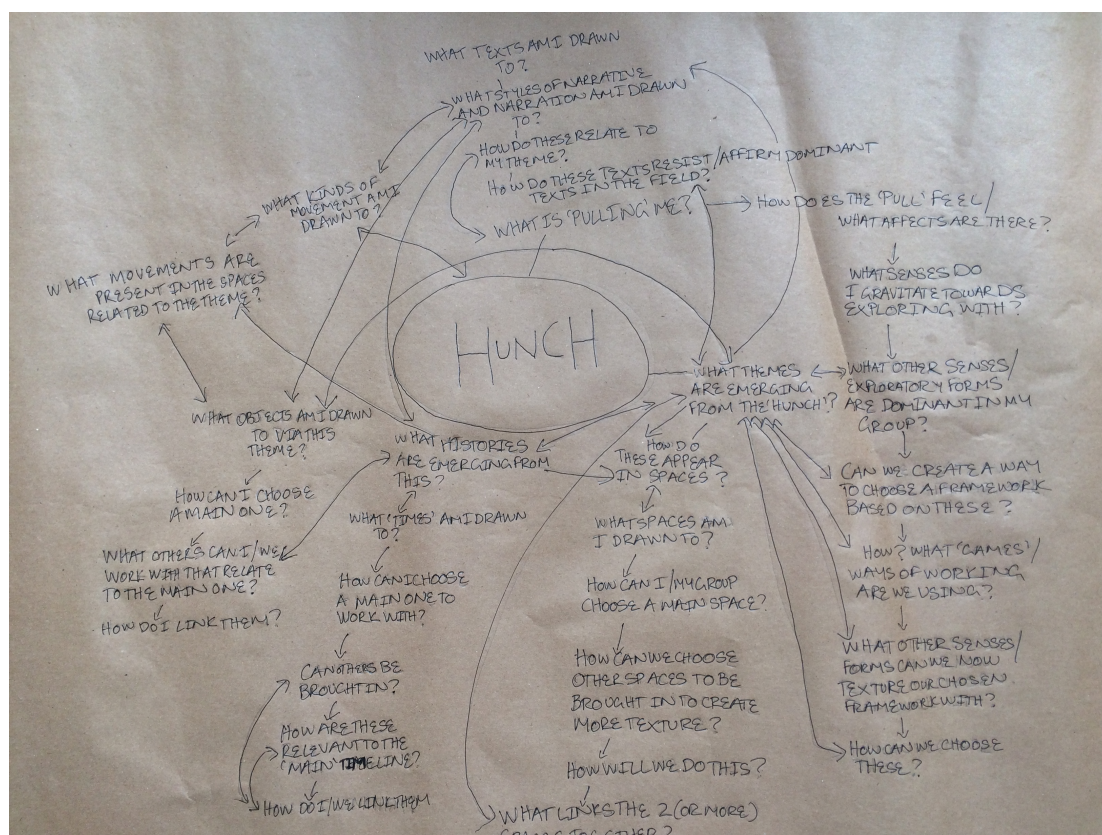 WHAT TEXTS AM I DRAWN
TO?
WHAT STYLES OF NARRATIVE
AND NARRATION AM I DRAWN
TO?
HOW DO THESE RELATE TO
MY THEME?
HOW DO THESE TEXTS RESIST/AFFIRM DOMINANT
TEXTS IN THE FIELD?
WHAT IS 'PULLING' ME?
HOW DOES THE 'PULL' FEEL/
WHAT AFFECTS ARE THERE?
WHAT SENSES DO
I GRAVITATE TOWARDS
EXPLORING WITH?
WHAT OTHER SENSES/
EXPLORATORY FORMS
ARE DOMINANT IN MY
GROUP?
CAN WE CREATE A WAY
TO CHOOSE A FRAMEWORK
BASED ON THESE?
HOW? WHAT 'GAMES'/
WAYS OF WORKING
ARE WE USING?
WHAT OTHER SENSES/
FORMS CAN WE NOW
TEXTURE OUR CHOSEN
FRAMEWORK WITH?
HOW CAN WE CHOOSE
THESE?
WHAT KINDS OF
MOVEMENT AM I
DRAWN TO?
WHAT MOVEMENTS ARE
PRESENT IN THE SPACES
RELATED TO THE THEME?
HUNCH
WHAT THEMES
ARE EMERGING
FROM THE 'HUNCH'?
WHAT OBJECTS AM I DRAWN
TO VIA THIS
THEME?
HOW CAN I CHOOSE
A MAIN ONE?
WHAT OTHERS CAN I/WE
WORK WITH THAT RELATE
TO THE MAIN ONE?
HOW DO I LINK THEM?
WHAT HISTORIES
ARE EMERGING FROM
THIS?
WHAT 'TIMES' AM I DRAWN
TO?
HOW CAN I CHOOSE
A MAIN ONE TO
WORK WITH?
CAN OTHERS BE
BROUGHT IN?
HOW ARE THESE
RELEVANT TO THE
'MAIN' TIMELINE?
HOW DO I/WE LINK THEM
HOW DO
THESE APPEAR
IN SPACES?
WHAT SPACES AM
I DRAWN TO?
HOW CAN I/MY GROUP
CHOOSE A MAIN SPACE?
HOW CAN WE CHOOSE
OTHER SPACES TO BE
BROUGHT IN TO CREATE
MORE TEXTURE?
HOW WILL WE DO THIS?
WHAT LINKS THE 2 (OR MORE)
SPACES TOGETHER?